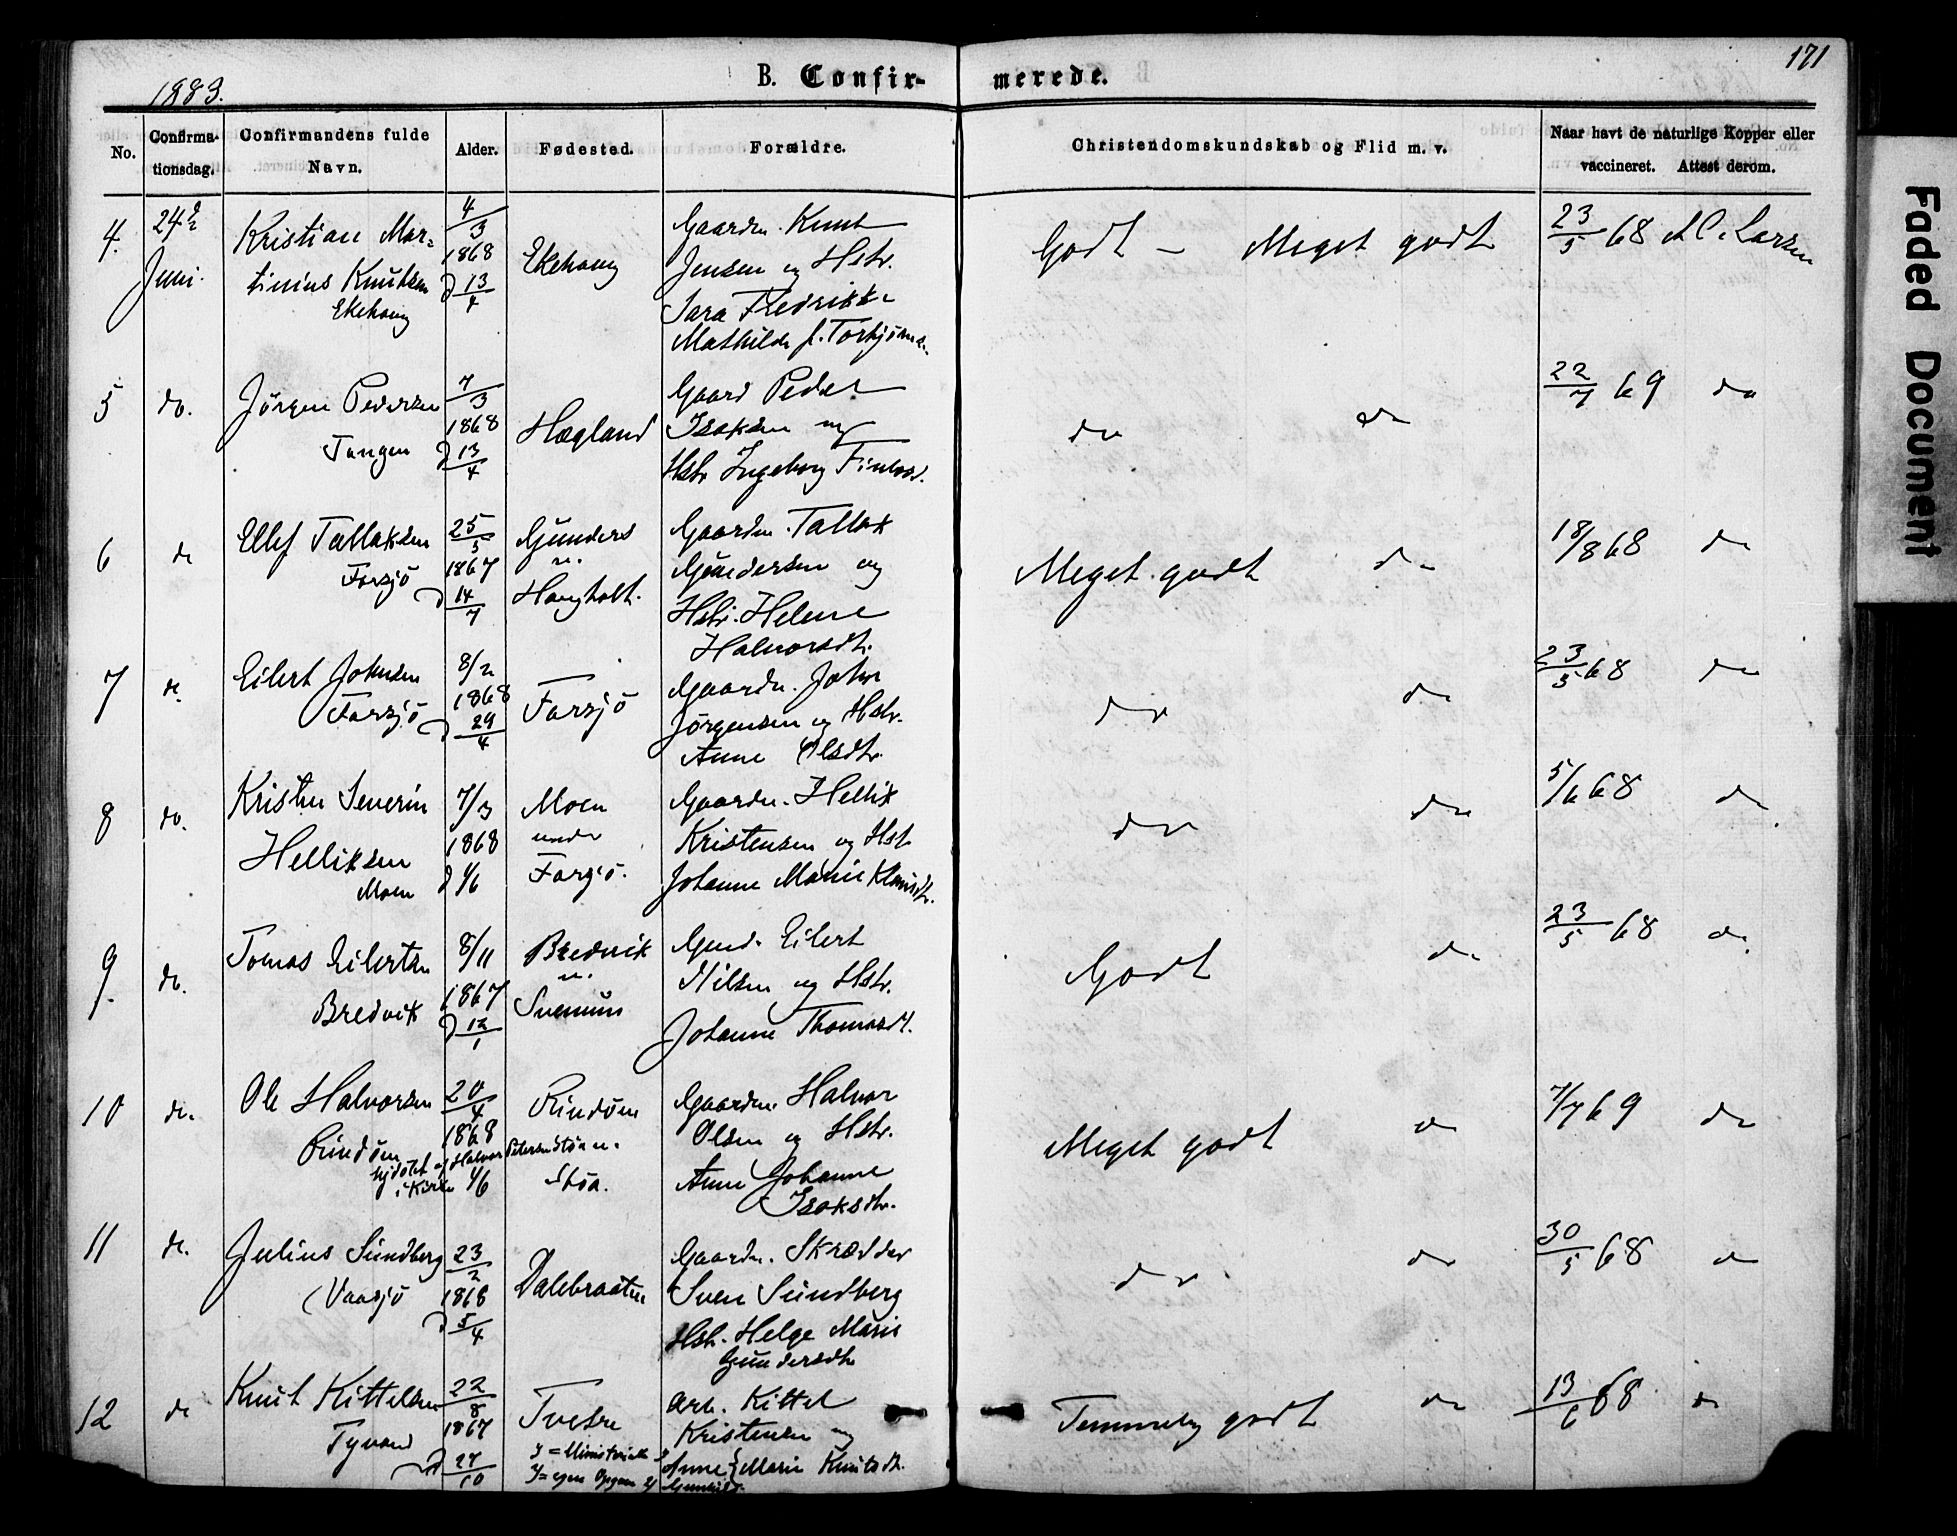 171
1883.
B. Confir-
merede.
No.
Confirma-
tionsdag.
Confirmandens fulde
Navn.
Alder.
Fødested.
Forældre.
Christendomskundskab og Flid m. v.
Naar havt de naturlige Kopper eller
vaccineret. Attest derom.
4.
24de
Juni.
Kristian Mar-
tinius Knutsen
Ekehaug
4/3
1868
d 13/4
Ekehaug
Gaardm. Knut
Jensen og Hstr.
Sara Fredrikke
Mathilde f.
Godt - Meget godt
23/5 68 A C. Larsen
5
do.
Jørgen Pedersen
Tangen
7/3
1868
d 13/4
Hægland
Gaard Peder
Isaksen og
Hstr Ingeborg
do do
22/7 69 do
6
do
Ellef Tallaksen
Farsjø
25/5
1867
d 14/7
Gunders
u.
Haugholt.
Gaardm. Tallak
Gundersen og
Hstr. Helene
Halvorsdt.
Meget godt do
18/8 68 do
7
do
Eilert Johnsen
Farsjø
8/2
1868
d 29/4
Farsjø
Gaardm. John
Jørgensen og Hstr.
Anne Olsdtr.
do do
23/5 68 do
8
do.
Kristen Severin
Helliksen
Moen
7/3
1868
d 1/6
Moen
under
Farsjø.
Gaardm. Hellik
Kristensen og Hstr
Johanne Marie
do do
5/6 68 do
9.
do.
Tomas Eilertsen
Bredvik
8/11
1867
d 12/1
Bredvik
u.
Gmd. Eilert
Nilsen og Hstr.
Johanne Thomasdt.
Godt do
23/5 68 do
10
do.
Ole Halvorsen
Rindøen
20/4
1868
hjdøbt af Halvor
i Kirken 1/6
Rindøen
u.
Støa.
Gaardm. Halvor
Olsen og Hstr.
Anne Johanne
Isaksdtr.
Meget godt do
7/7 69 do
11
do.
Julius Sundberg
Vaasjø
23/2
1868
d 5/4
Dalebraaten
Gaardm. Skrædder
Sven Sundberg
Hstr. Helge Marie
Gundersdtr
do do
30/5 68 do
12
do
Knut Kittelsen
Tyvand
22/8
1867
d 27/10
Tvetre
Arb. Kittel
Kristensen og
Anne Marie Knutsdt.
Temmelig godt do
13/6 68 do
Faded Document